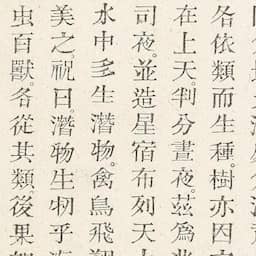 各依類而生種。樹亦因
在上天。判分晝夜。茲爲
司夜。並造星宿布列天
水中多生潛物。禽鳥飛
美之。祝曰。潛物生牣乎
虫百獸。各從其類。後果